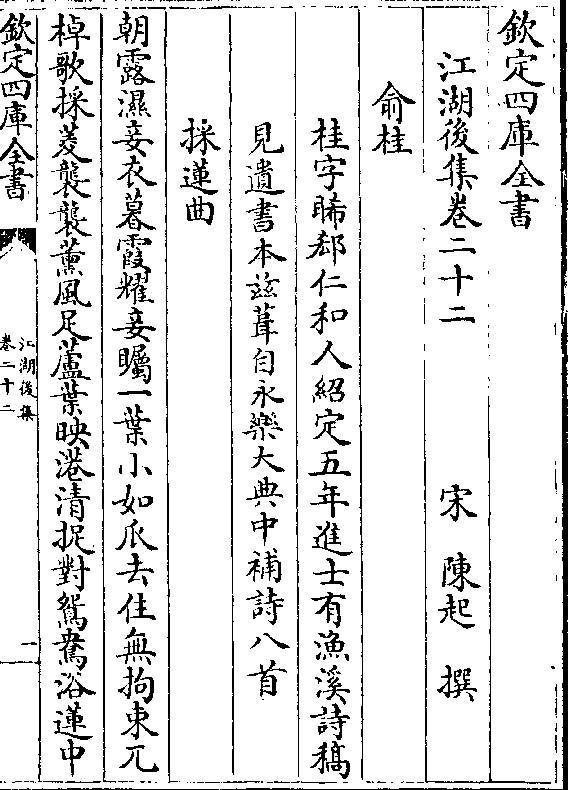 欽定四庫全書
江湖後集卷二十二
宋 陳起 撰
俞桂
桂字晞郄仁和人紹定五年進士有漁溪詩稿
見遺書本兹葺自永樂大典中補詩八首
採蓮曲
朝露濕妾衣暮霞耀妾矚一葉小如爪去住無拘束兀
棹歌採菱襲襲薰風足蘆葉映港清捉對鴛鴦浴蓮中
欽定四庫全書
江湖後集
卷二十二
一